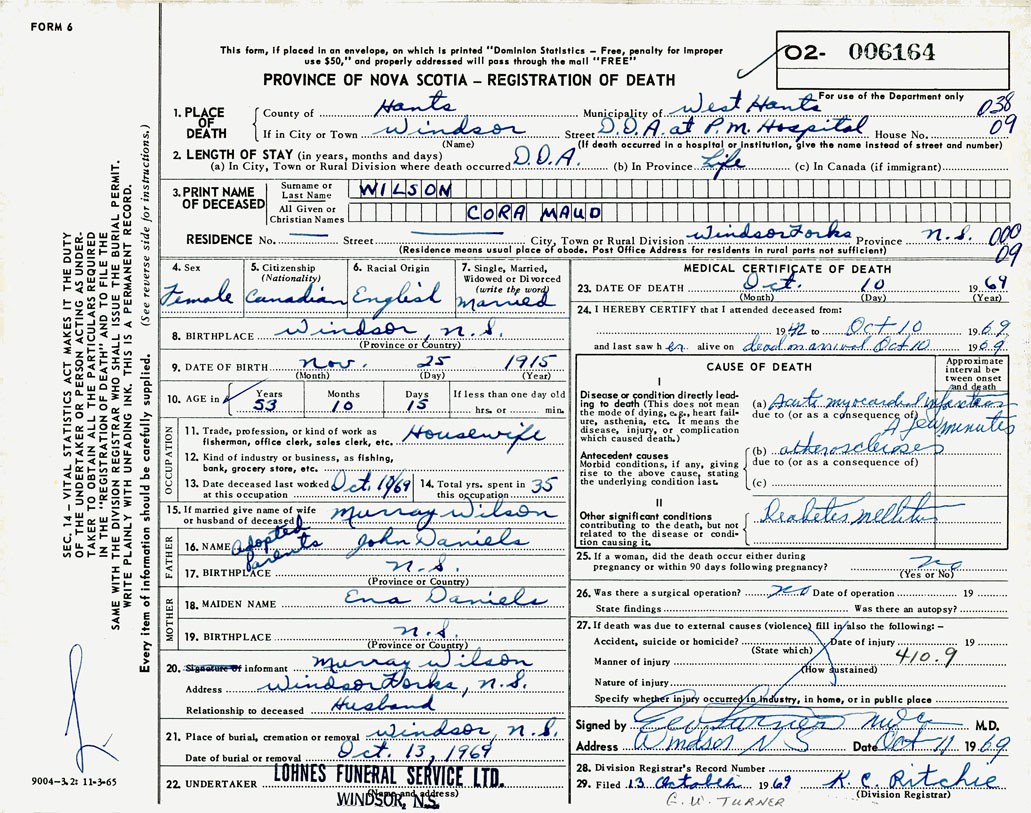 FORM 6
This form, if placed in an envelope, on which is printed "Dominion Statistics – Free, penalty for improper
use $50," and properly addressed will pass through the mail "FREE"
O2- 006164
PROVINCE OF NOVA SCOTIA – REGISTRATION OF DEATH
For use of the Department only
1. PLACE OF DEATH County of Hants Municipality of West Hants 038
If in City or Town Windsor Street D.O.A. at P.M. Hospital House No. 09
(Name) (If death occurred in a hospital or institution, give the name instead of street and number)
2. LENGTH OF STAY (in years, months and days)
(a) In City, Town or Rural Division where death occurred D.O.A. (b) In Province Life (c) In Canada (if immigrant)
3. PRINT NAME OF DECEASED Surname or Last Name WILSON
All Given or Christian Names CORA MAUD
RESIDENCE No. — Street — City, Town or Rural Division Windsor Forks Province N.S. 000
(Residence means usual place of abode. Post Office Address for residents in rural parts not sufficient) 09
4. Sex Female
5. Citizenship (Nationality) Canadian
6. Racial Origin English
7. Single, Married, Widowed or Divorced (write the word) Married
8. BIRTHPLACE Windsor, N.S.
(Province or Country)
9. DATE OF BIRTH Nov. 25 1915
(Month) (Day) (Year)
10. AGE in Years 53 Months 10 Days 15 If less than one day old hrs. or min.
OCCUPATION
11. Trade, profession, or kind of work as fisherman, office clerk, sales clerk, etc. Housewife
12. Kind of industry or business, as fishing, bank, grocery store, etc.
13. Date deceased last worked at this occupation Oct. 10/69 14. Total yrs. spent in this occupation 35
15. If married give name of wife or husband of deceased Murray Wilson
Adopted parents
FATHER
16. NAME John Daniels
17. BIRTHPLACE N.S.
(Province or Country)
MOTHER
18. MAIDEN NAME Ena Daniels
19. BIRTHPLACE N.S.
(Province or Country)
20. Signature of informant Murray Wilson
Address Windsor Forks, N.S.
Relationship to deceased Husband
21. Place of burial, cremation or removal Windsor, N.S.
Date of burial or removal Oct. 13, 1969
22. UNDERTAKER LOHNES FUNERAL SERVICE LTD.
(Name and address)
WINDSOR, N.S.
MEDICAL CERTIFICATE OF DEATH
23. DATE OF DEATH Oct. 10 1969
(Month) (Day) (Year)
24. I HEREBY CERTIFY that I attended deceased from:
1942 to Oct 10 1969
and last saw her alive on dead on arrival Oct 10 1969
CAUSE OF DEATH
Approximate interval between onset and death
I
Disease or condition directly leading to death (This does not mean the mode of dying, e.g., heart failure, asthenia, etc. It means the disease, injury, or complication which caused death.)
(a) Acute myocardial infarction
due to (or as a consequence of)
A few minutes
Antecedent causes
Morbid conditions, if any, giving rise to the above cause, stating the underlying condition last.
(b) atherosclerosis
due to (or as a consequence of)
(c)
II
Other significant conditions contributing to the death, but not related to the disease or condition causing it.
Diabetes mellitus
25. If a woman, did the death occur either during
pregnancy or within 90 days following pregnancy? no
(Yes or No)
26. Was there a surgical operation? no Date of operation 19
State findings Was there an autopsy?
27. If death was due to external causes (violence) fill in also the following: –
Accident, suicide or homicide? Date of injury 19
(State which)
Manner of injury 410.9
(How sustained)
Nature of injury
Specify whether injury occurred in Industry, in home, or in public place
Signed by M.D.
Address Windsor N S Date Oct 11 1969
28. Division Registrar's Record Number
29. Filed 13 October 1969 K. C. Ritchie
(Division Registrar)
G. W. TURNER
SEC. 14 – VITAL STATISTICS ACT MAKES IT THE DUTY
OF THE UNDERTAKER OR PERSON ACTING AS UNDER-
TAKER TO OBTAIN ALL THE PARTICULARS REQUIRED
IN THE "REGISTRATION OF DEATH" AND TO FILE THE
SAME WITH THE DIVISION REGISTRAR WHO SHALL ISSUE THE BURIAL PERMIT.
WRITE PLAINLY WITH UNFADING INK. THIS IS A PERMANENT RECORD.
Every item of information should be carefully supplied. (See reverse side for instructions.)
9004–3.2: 11-3-65